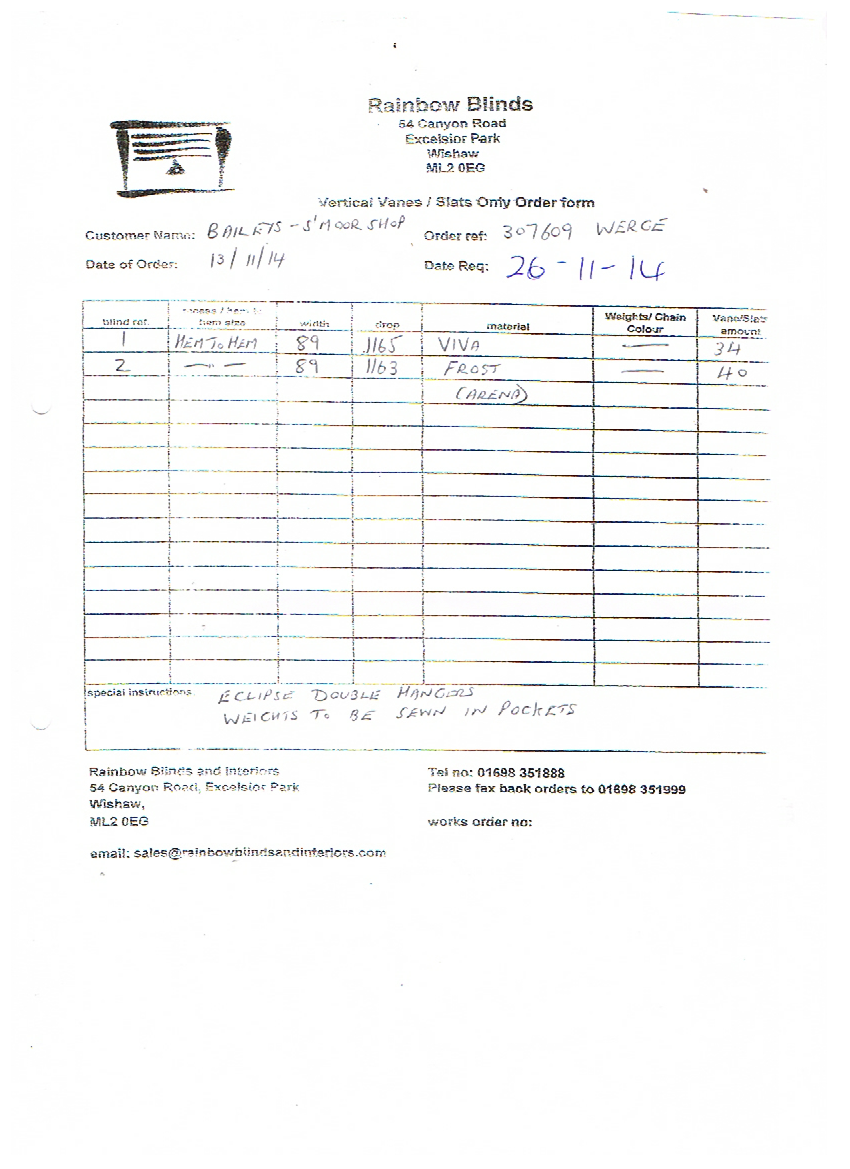 Rainbow Blinds
54 Canyon Road
Excelsior Park
Wishaw
ML2 0EG
Vertical Vanes / Slats Only Order form
Customer Name: BAILEYS - S'MOOR SHOP Order ref: 307609 WERGE
Date of Order: 13/11/14 Date Req: 26-11-14
blind ref. hem size width drop material Weights/ Chain Colour Vane/Slats amount
1 HEM TO HEM 89 1165 VIVA — 34
2 —"— 89 1163 FROST — 40
(ARENA)
special instructions. ECLIPSE DOUBLE HANGERS
WEIGHTS TO BE SEWN IN POCKETS
Rainbow Blinds and Interiors Tel no: 01698 351888
54 Canyon Road, Excelsior Park Please fax back orders to 01698 351999
Wishaw,
ML2 0EG works order no:
email: sales@rainbowblindsandinteriors.com